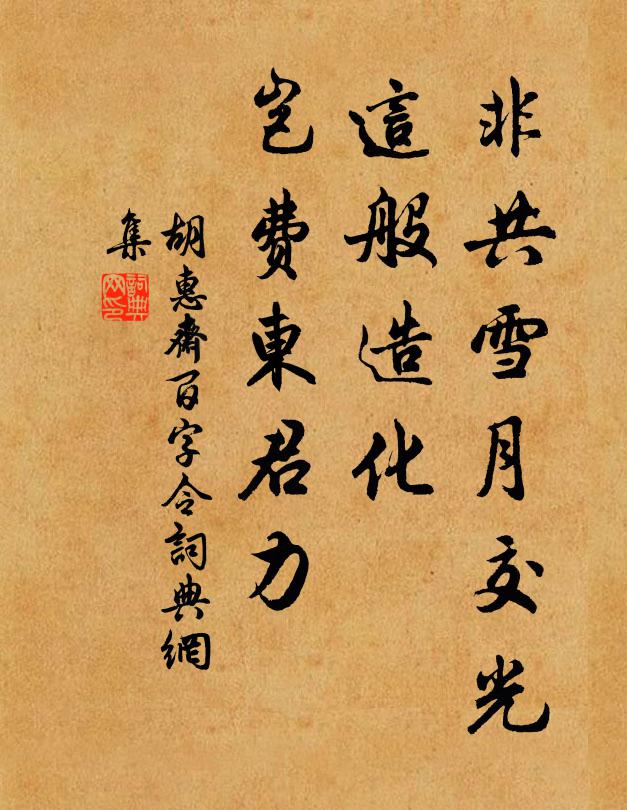 非共雪月交光
這般造化
豈費東君力
胡惠齋百字令詞典網
集
詞典
网印